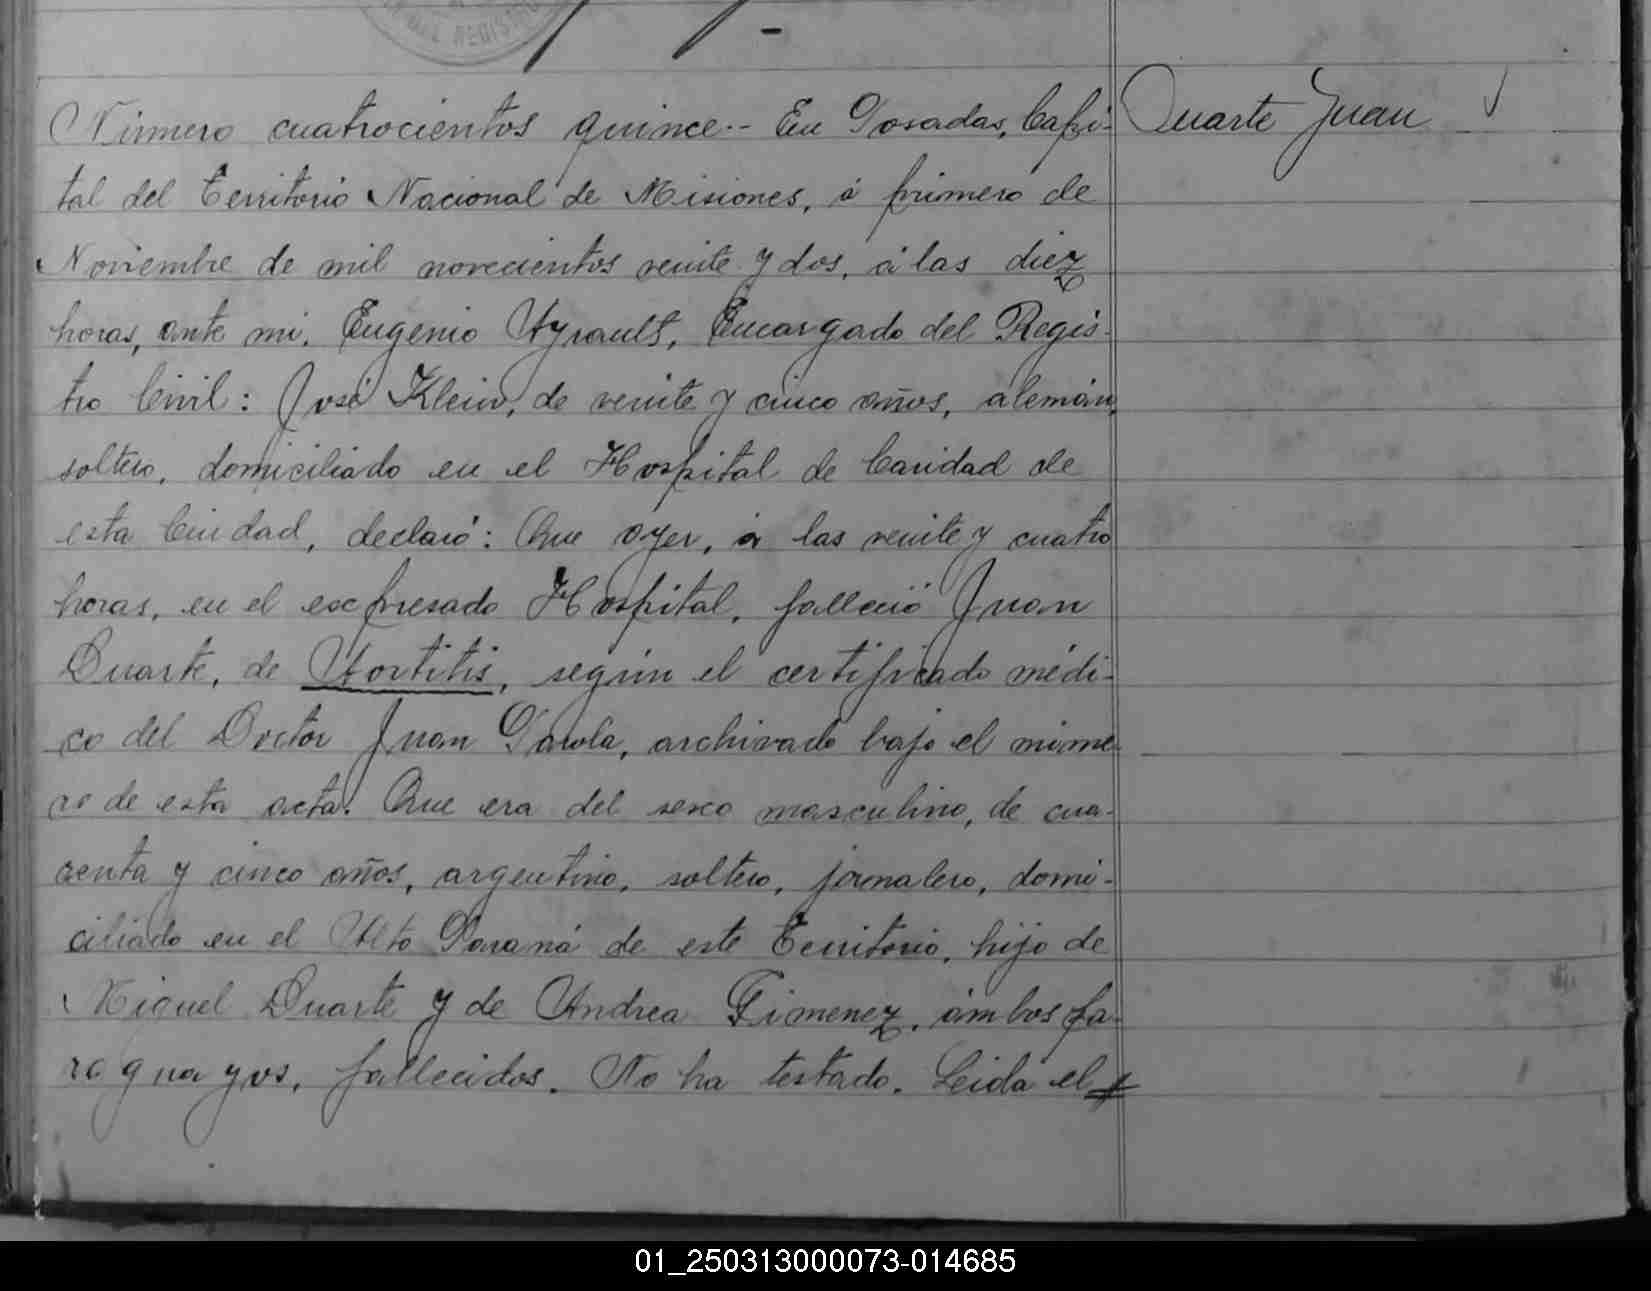 REGISTRO
Número cuatrocientos quince.- En Posadas, Capi-
Duarte Juan
tal del Territorio Nacional de Misiones, á primero de
Noviembre de mil novecientos veinte y dos, á las diez
horas, ante mi, Eugenio Ayrault, Encargado del Regis-
tro Civil: José Klein, de veinte y cinco años, alemán,
soltero, domiciliado en el Hospital de Caridad de
esta Ciudad, declaró: Que ayer, á las veinte y cuatro
horas, en el expresado Hospital, falleció Juan
Duarte, de Aortitis, según el certificado médi-
co del Doctor Juan Parola, archivado bajo el núme-
ro de esta acta. Que era del sexo masculino, de cua-
renta y cinco años, argentino, soltero, jornalero, domi-
ciliado en el Alto Paraná de este Territorio, hijo de
Miguel Duarte y de Andrea Gimenez, ámbos pa-
raguayos, fallecidos. No ha testado. Leida el
01_250313000073-014685